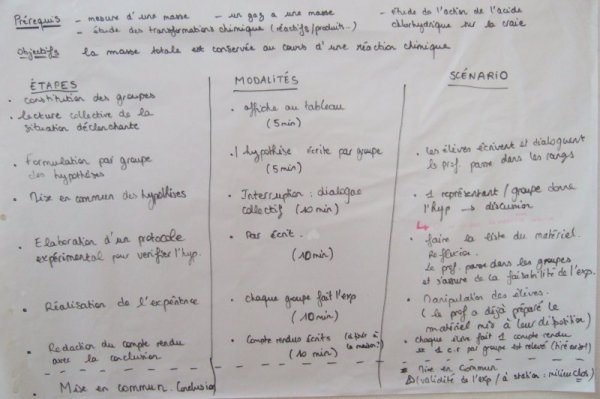 Prérequis - mesure d'une masse - un gaz a une masse - étude de l'action de l'acide
- étude des transformations chimique (réactifs/produit...) chlorhydrique sur la craie
Objectifs la masse totale est conservée au cours d'une réaction chimique
ÉTAPES
• constitution des groupes
• lecture collective de la
situation déclenchante
• Formulation par groupe
des hypothèses
• Mise en commun des hypothèses
• Elaboration d'un protocole
expérimental pour vérifier l'hyp.
• Réalisation de l'expérience
• Redaction du compte rendu
avec la conclusion
• Mise en commun. Conclusion
MODALITÉS
• affiche au tableau
(5 min)
• 1 hypothèse écrite par groupe
(5 min)
• Interruption : dialogue
collectif (10 min)
• Par écrit.
(10 min)
• chaque groupe fait l'exp
(10 min)
• Compte rendus écrits (à finir à
la maison?)
(10 min)
SCÉNARIO
• les élèves écrivent et dialoguent
le prof. passe dans les rangs
• 1 représentant / groupe donne
l'hyp → discussion
• faire la liste du matériel.
Reflexion.
le prof. passe dans les groupes
et s'assure de la faisabilité de l'exp.
• Manipulation des élèves.
(le prof a déjà préparé le
matériel mis à leur disposition)
• chaque élève fait 1 compte rendu
et 1 c.r par groupe est relevé
• Mise en commun
(validité de l'exp / à station : milieu clos)